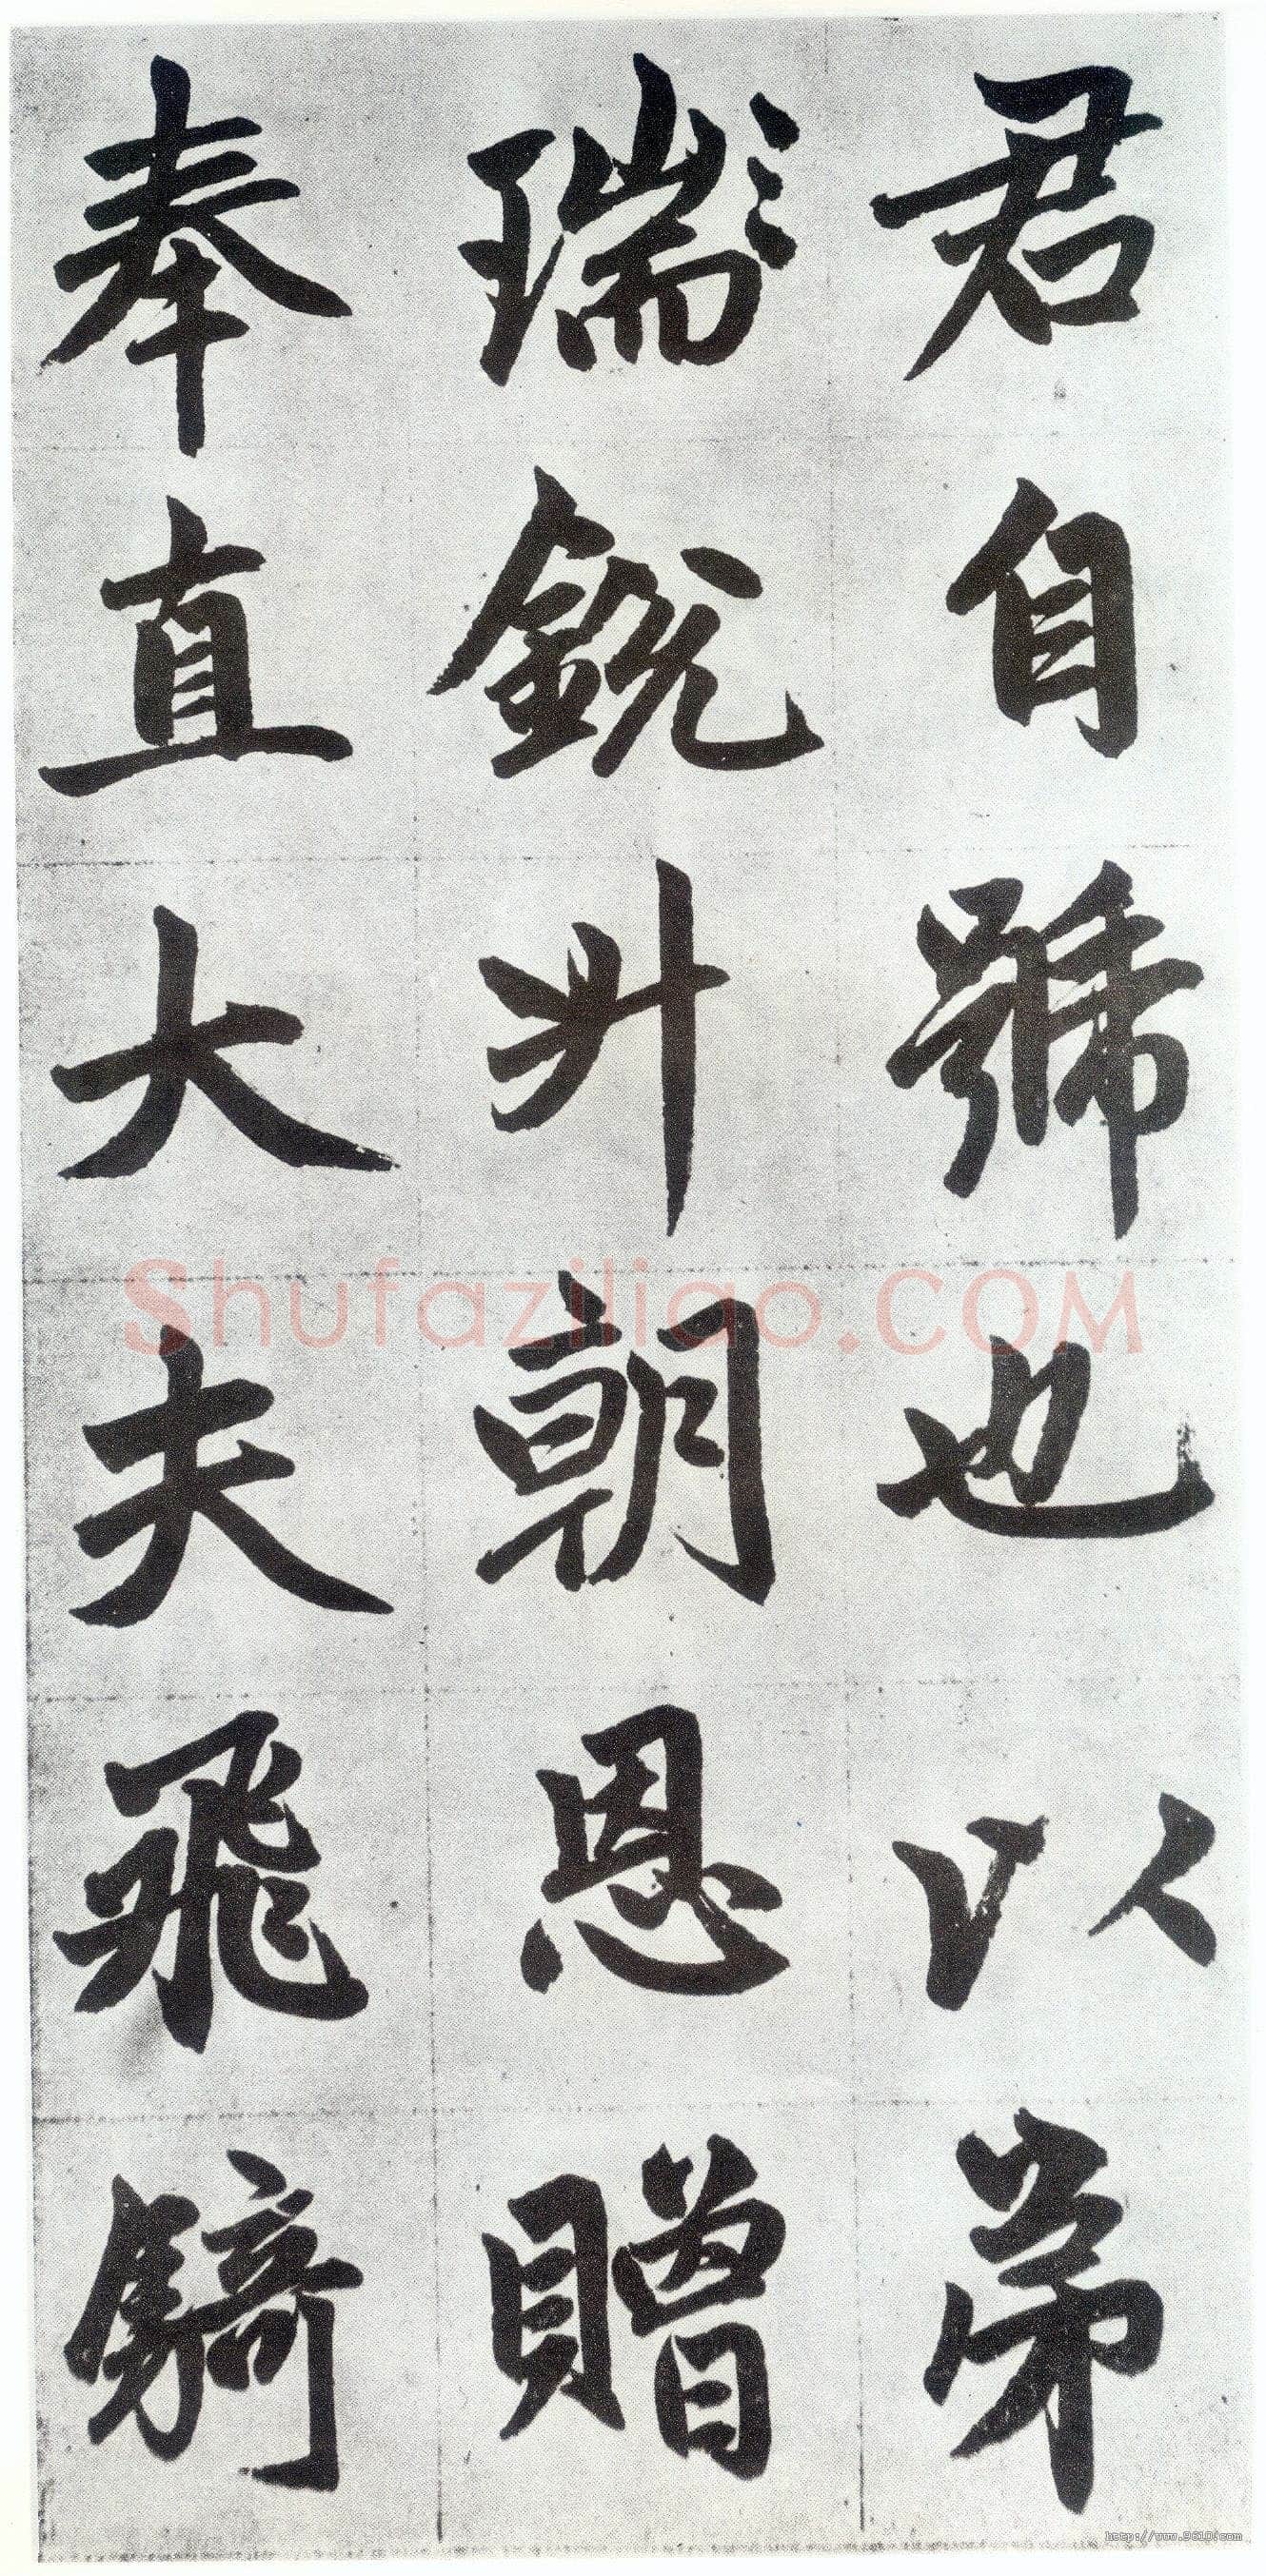 君自號也以弟
瑞銳升朝恩贈
奉直大夫飛騎
Shufaziliao.COM
http://www.9610.com